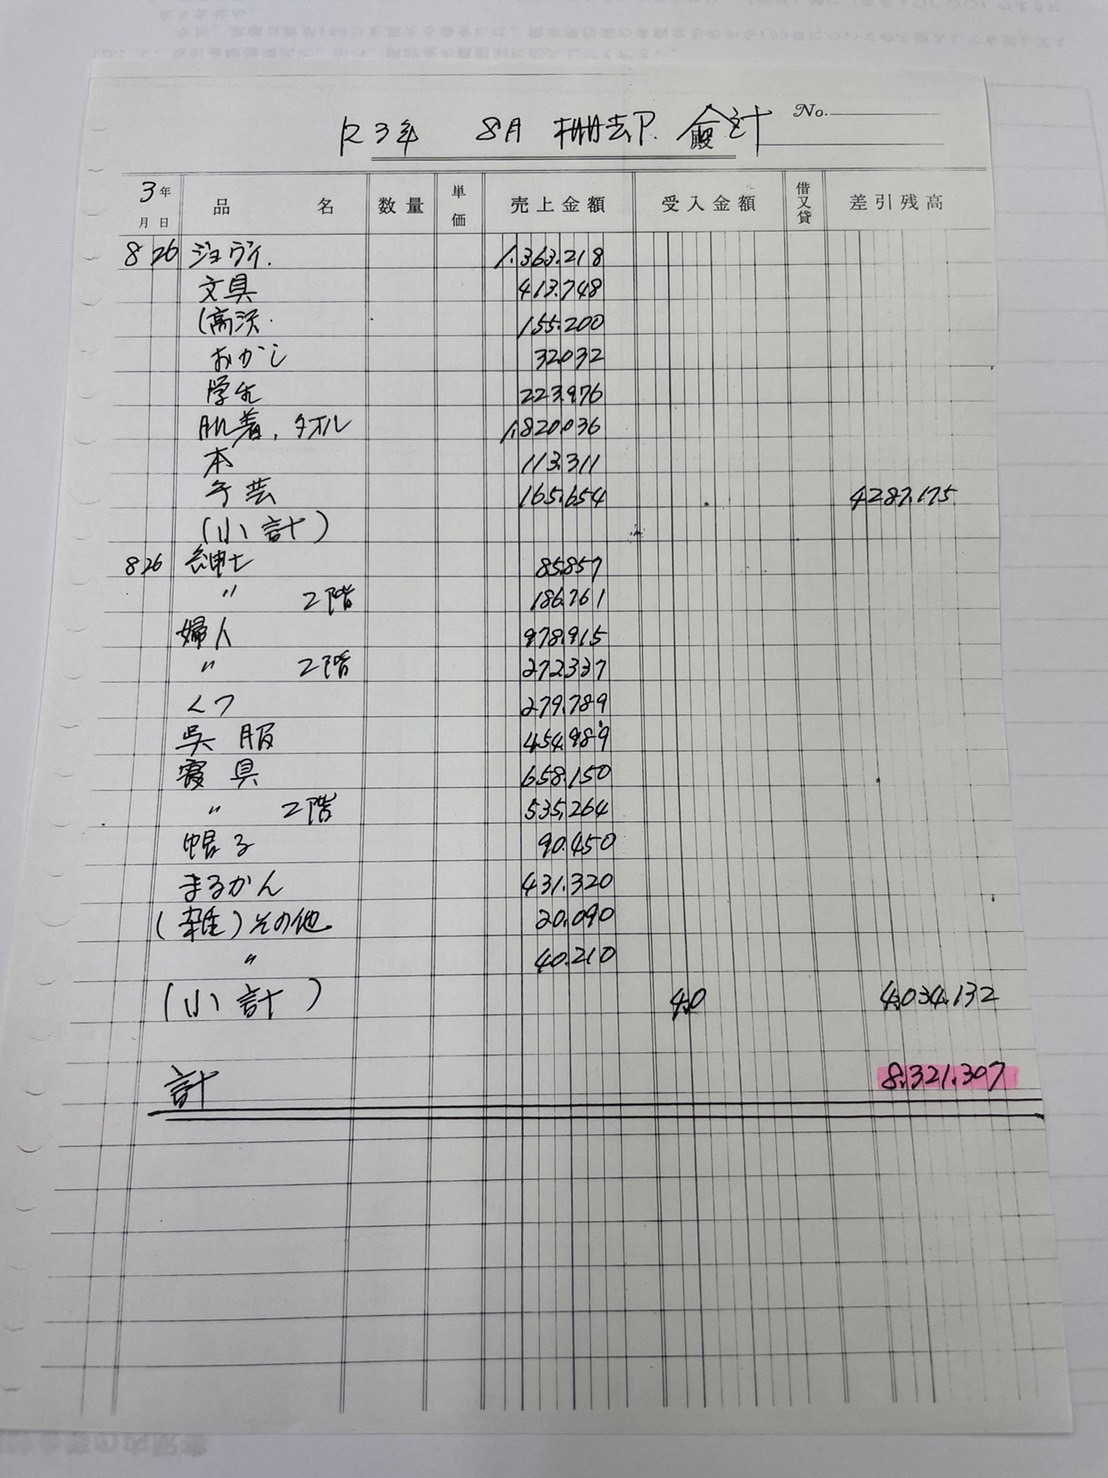 R3年 8月 棚卸 合計 No.
3年 月日 品名 数量 単価 売上金額 受入金額 借又貸 差引残高
8 26 ジョウイ. 1,363,218
文具 413,748
(高沢 155,200
おかし 32032
学生 223,976
肌着、タオル 1,820,036
本 113,311
手芸 165,654 4287,175
(小計)
8 26 紳士 85,857
〃 2階 186,761
婦人 978,915
〃 2階 272,337
くつ 279,789
呉服 454,989
寝具 658,150
〃 2階 535,264
帽子 90,450
まるかん 431,320
(雑)その他 20,090
〃 40,210
(小計) 4,0 4,034,132
計 8,321,307